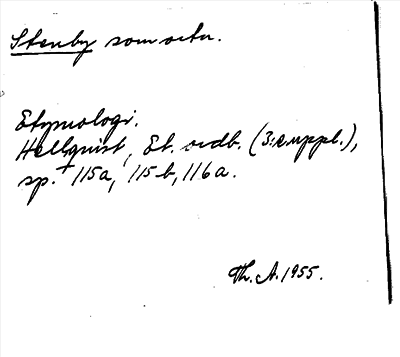 Stenby som ortn.
Etymologi.
Hellquist, Et. ordb. (3:e uppl.),
sp. 115a, 115b, 116a.
Th. A. 1955.